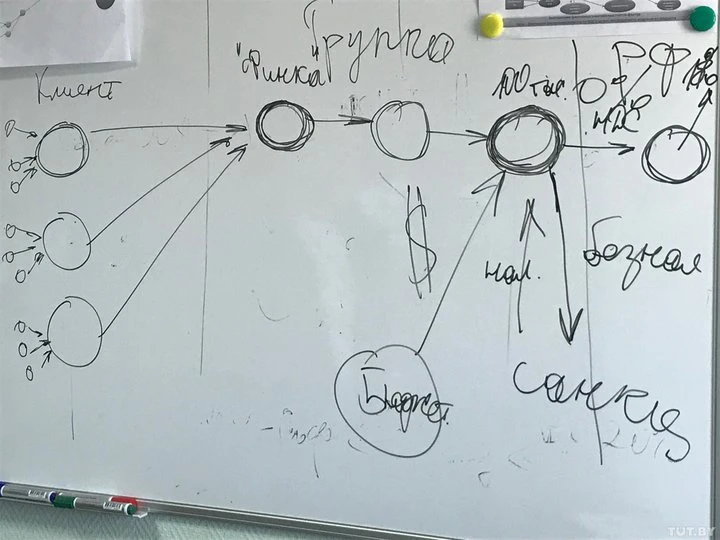 Группа
Клиент
"Финка"
100 тыс.
РФ
$
нал.
безнал
Бюджет.
санкц
TUT.BY